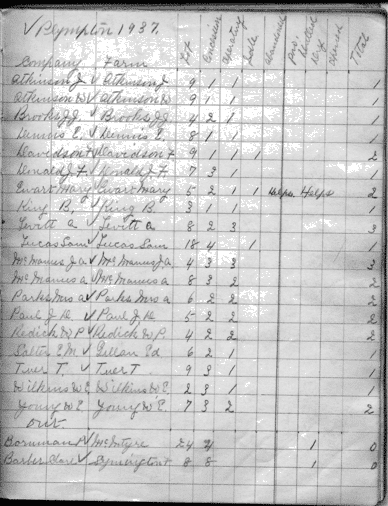 ✓ Plympton 1937.
Company Farm Lot Concession Operating Idle Abandoned Total
Atkinson J ✓ Atkinson J. 9 1 1 1
Atkinson W ✓ Atkinson W 9 1 1 1
Brooks J.J. ✓ Brooks J.J. 4 2 1 1
Dennis E. ✓ Dennis E. 8 1 1 1
Davidson F ✓ Davidson F 9 1 1 1 2
Donald J.F. ✓ Donald J.F. 7 3 1 1
Ewart Mary ✓ Ewart Mary 5 2 1 1 Helps 2
King B. ✓ King B. 3 1 1 1
Levitt A ✓ Levitt A 8 2 3 3
Lucas Sam ✓ Lucas Sam 18 4 1 1
McManus J a ✓ McManus J a 4 3 3 3
McManus a ✓ McManus a 8 3 2 2
Parks Mrs a ✓ Parks Mrs a 6 2 2 2
Paul J H. ✓ Paul J H. 5 2 2 2
Redick W P ✓ Redick W P. 4 2 2 2
Salter E M ✓ Ed 6 2 1 1
Tuer T. ✓ Tuer T. 9 3 1 1
Wilkins W E ✓ Wilkins W E. 2 3 1 1
Young W E. Young W E. 7 3 2 2
out.
Bornman P ✓ McIntyre 24 1 0
Barber ✓ Symington 8 8 1 0